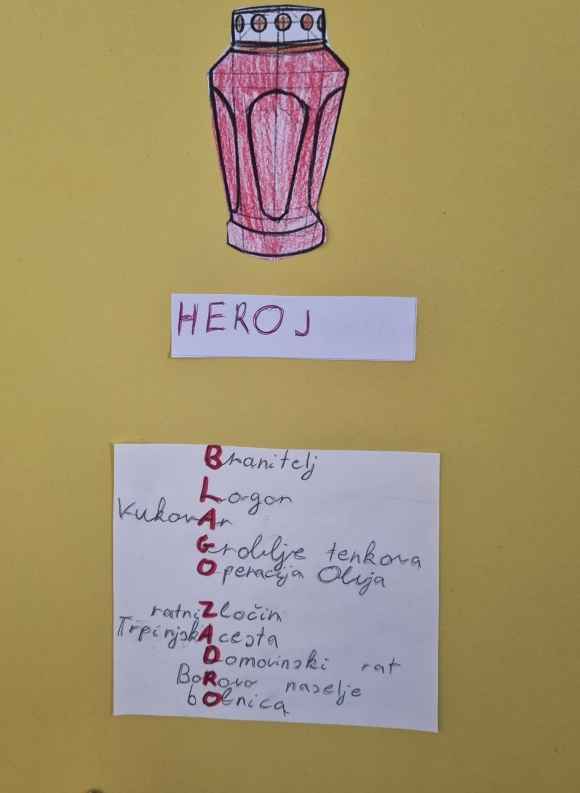 HEROJ
Branitelj
Logor
Vukovar
Groblje tenkova
Operacija Oluja
ratni Zločin
Trpinjska cesta
Domovinski rat
Borovo naselje
bolnica